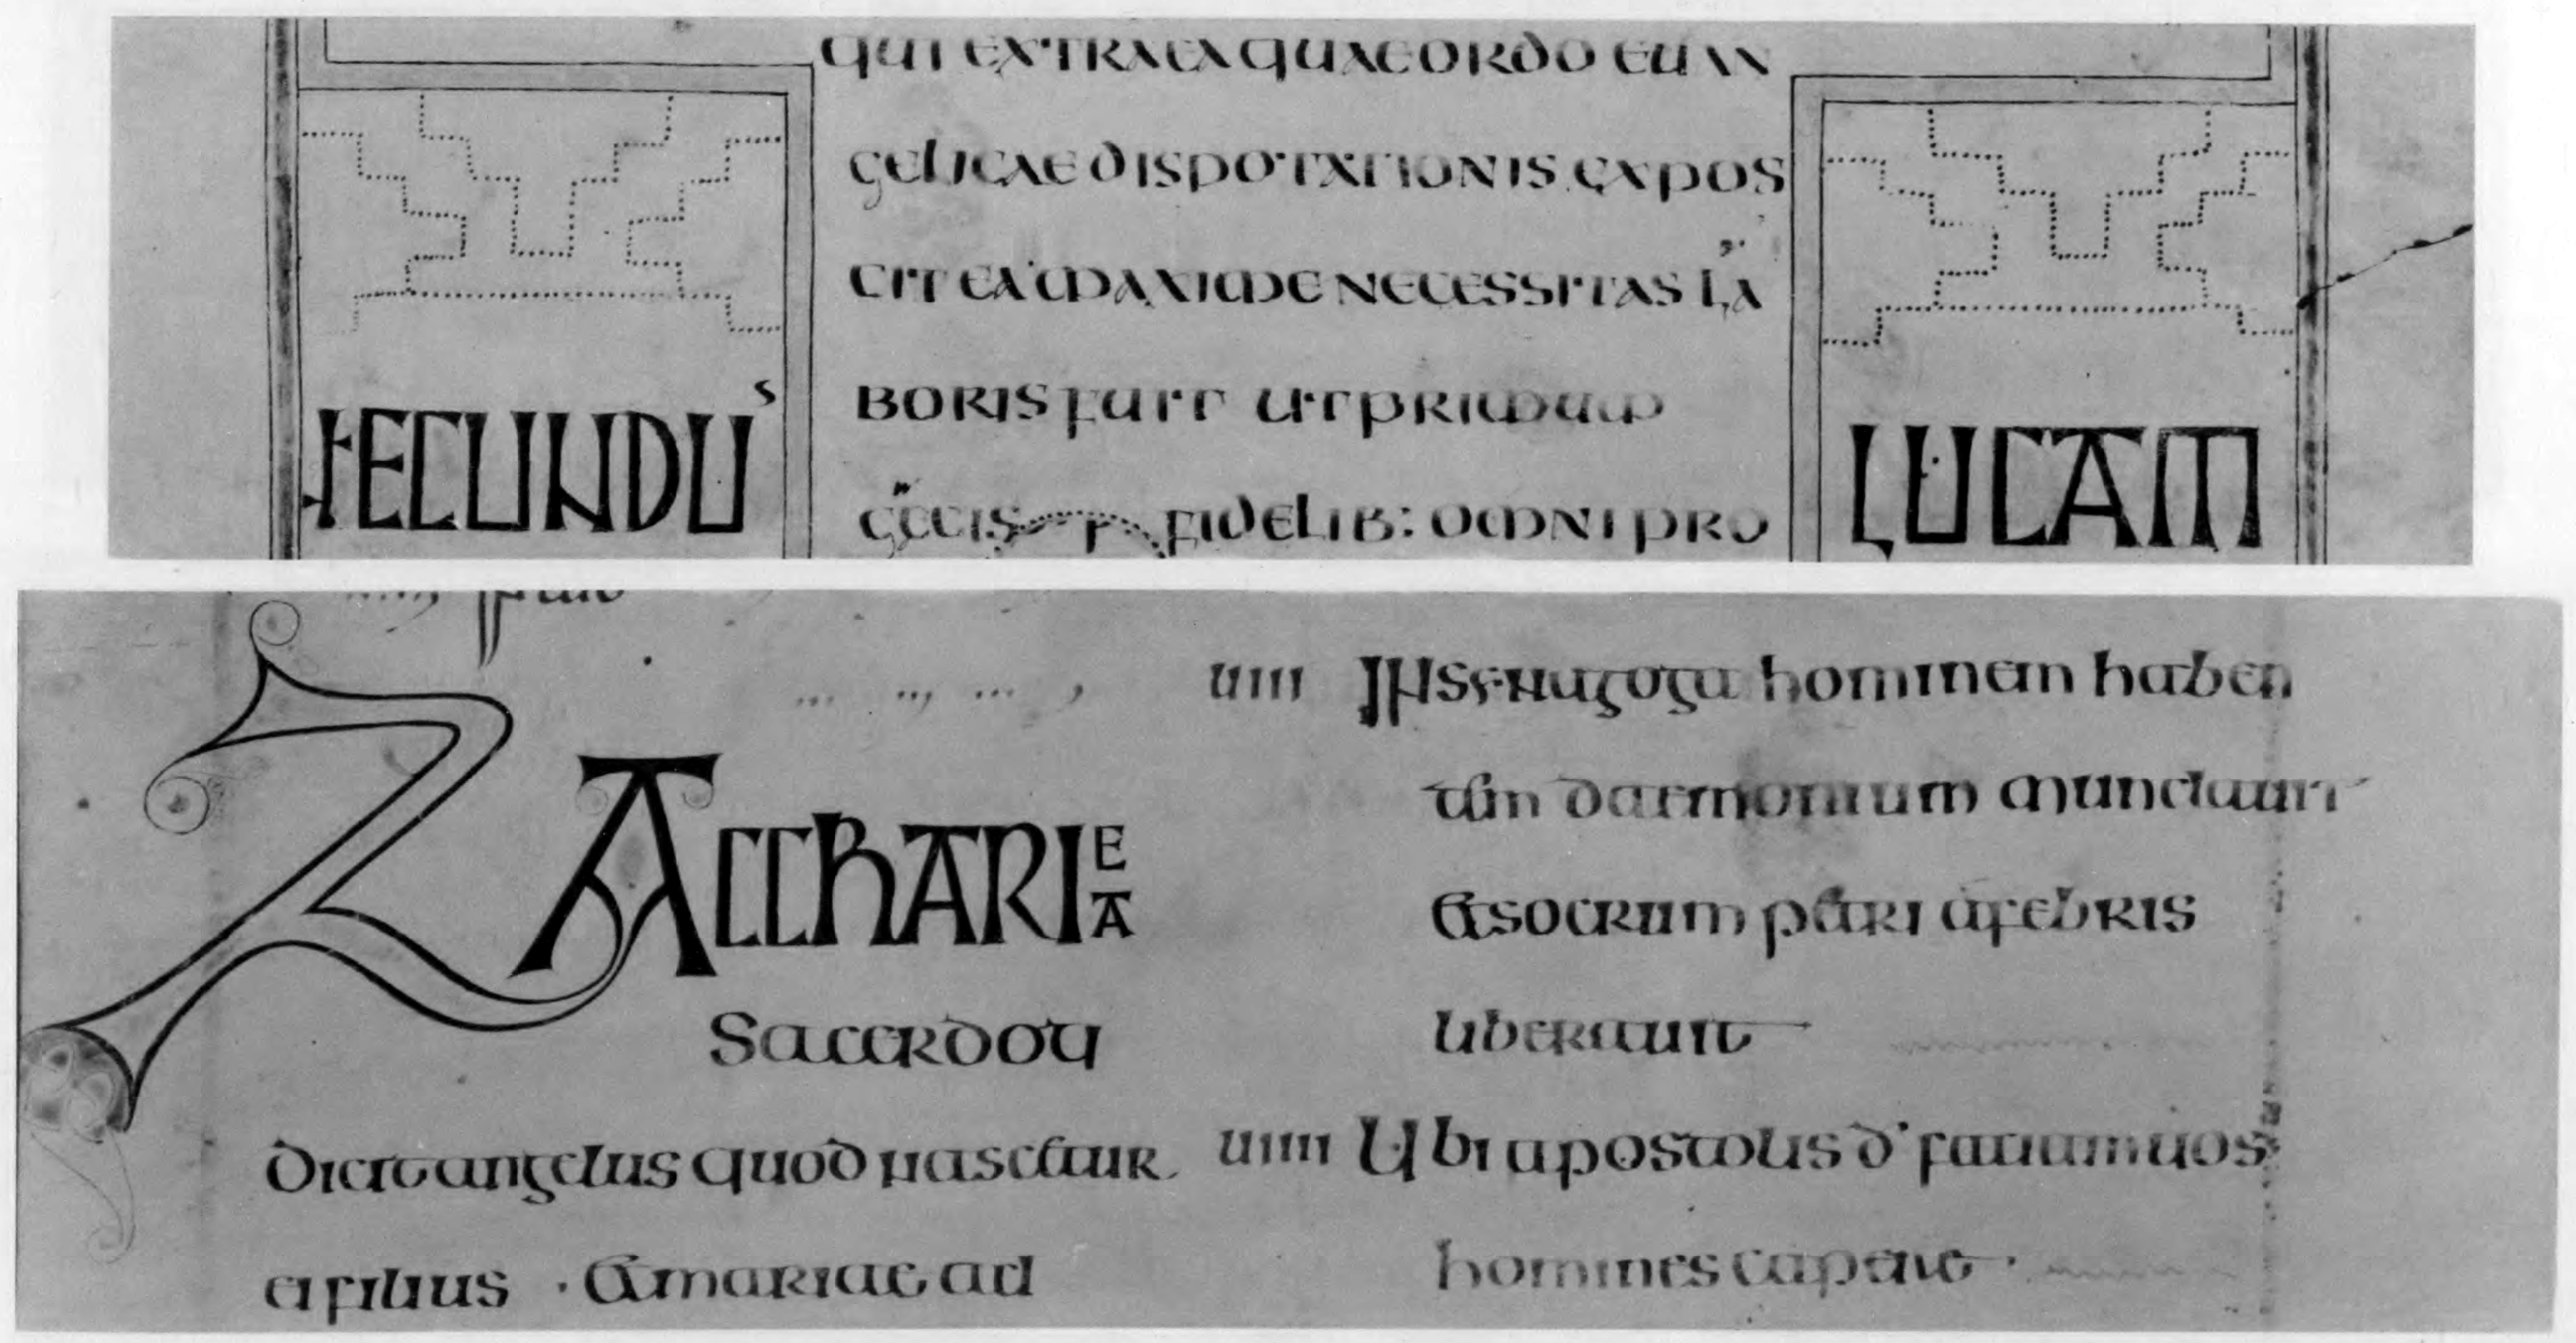 QUI EXTRA EA QUAE ORDO EUAN
GELICAE DISPOTATIONIS EXPOS
CIT EA MAXIME NECESSITAS LA
BORIS FUIT UT PRIMUM
GRECIS FIDELIB: OMNI PRO
SECUNDUS
LUCAM
ZACCHARIEA
Sacerdoti
dicit angelus quod nascetur
ei filius · Et mariae ad
uiii IN synagoga hominem haben
tem daemonium mundauit
Et socrum petri a febris
liberauit
uiiii Ubi apostolis d· faciam uos
homines capere ·